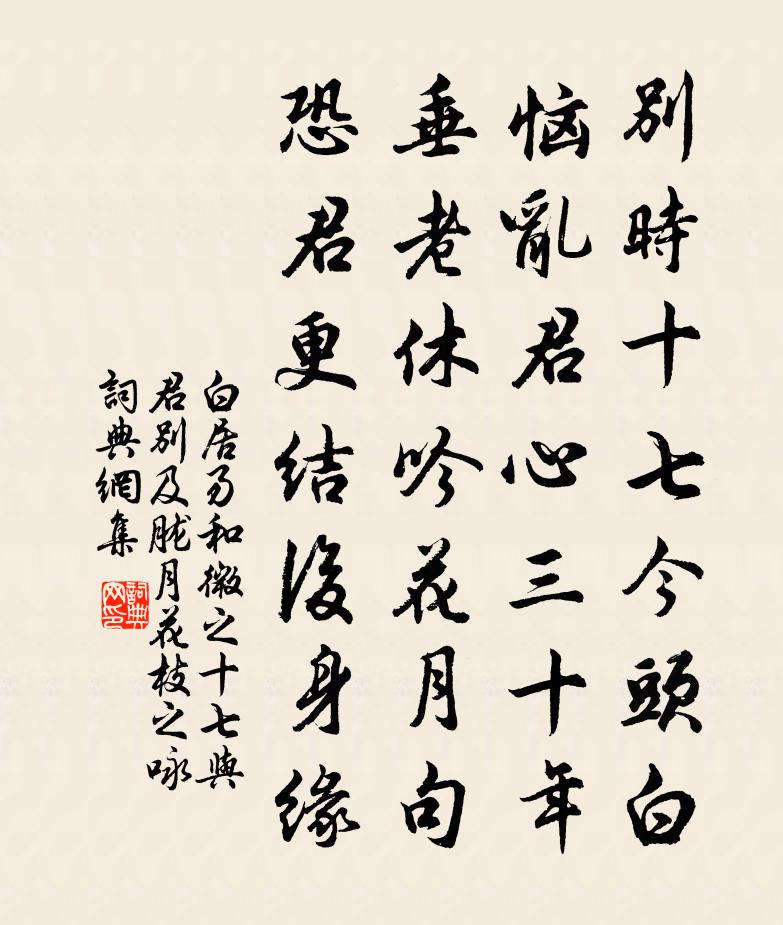 別時十七今頭白
恼亂君心三十年
垂老休吟花月句
恐君更結後身緣
白居易和微之十七與
君別及胧月花枝之咏
詞典網集
詞典网印